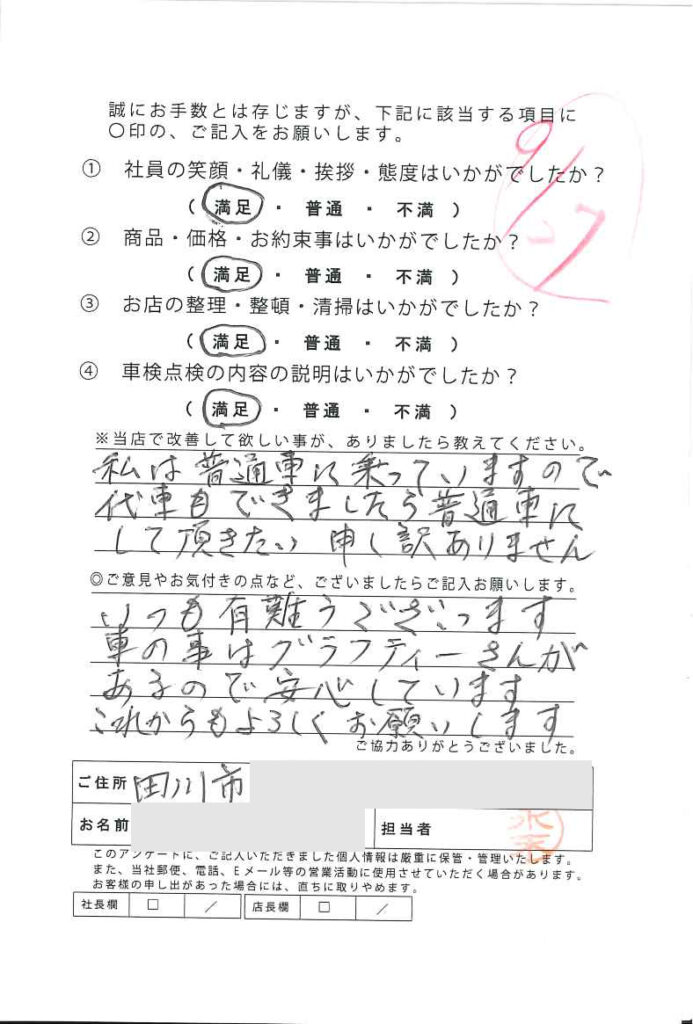 誠にお手数とは存じますが、下記に該当する項目に
〇印の、ご記入をお願いします。
9/27
① 社員の笑顔・礼儀・挨拶・態度はいかがでしたか？
( 満足 ・ 普通 ・ 不満 )
② 商品・価格・お約束事はいかがでしたか？
( 満足 ・ 普通 ・ 不満 )
③ お店の整理・整頓・清掃はいかがでしたか？
( 満足 ・ 普通 ・ 不満 )
④ 車検点検の内容の説明はいかがでしたか？
( 満足 ・ 普通 ・ 不満 )
※当店で改善して欲しい事が、ありましたら教えてください。
私は普通車に乗っていますので
代車もできましたら普通車に
して頂きたい 申し訳ありません
◎ご意見やお気付きの点など、ございましたらご記入お願いします。
いつも有難うございます
車の事はグラフティーさんが
あるので安心しています
これからもよろしくお願いします
ご協力ありがとうございました。
ご住所 田川市
お名前 担当者
このアンケートに、ご記入いただきました個人情報は厳重に保管・管理いたします。
また、当社郵便、電話、Eメール等の営業活動に使用させていただく場合があります。
お客様の申し出があった場合には、直ちに取りやめます。
社長欄 □ ／ 店長欄 □ ／